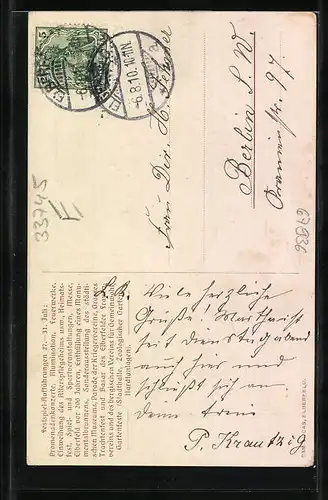 5
6.8.10.10-11N.
Frau Dir. H.
Berlin S. W.
Oranienstr. 97.
33745
67836
Festspiel-Aufführungen 27.–31. Juli;
Promenadenkonzerte, Illumination, Feuerwerke,
Einweihung des Altenpflegeheims usw., Heimats-
fest, Spiel- und Sportveranstaltungen, Messe,
Elberfeld vor 300 Jahren, Enthüllung eines Monu-
mentalbrunnens, Sonderausstellung des städti-
schen Museums, Parade der Kriegervereine, Grosses
Trachtenfest und Bazar des Elberfelder Frauen-
vereins und des bergischen Vereins für Gemeinwohl,
Gartenfeste (Stadthalle, Zoologischer Garten,
Hardtanlagen).
Viele herzliche
Grüße!
seit Dienstag abend
auch hier und
schließt sich an
dem
P. Krautzig